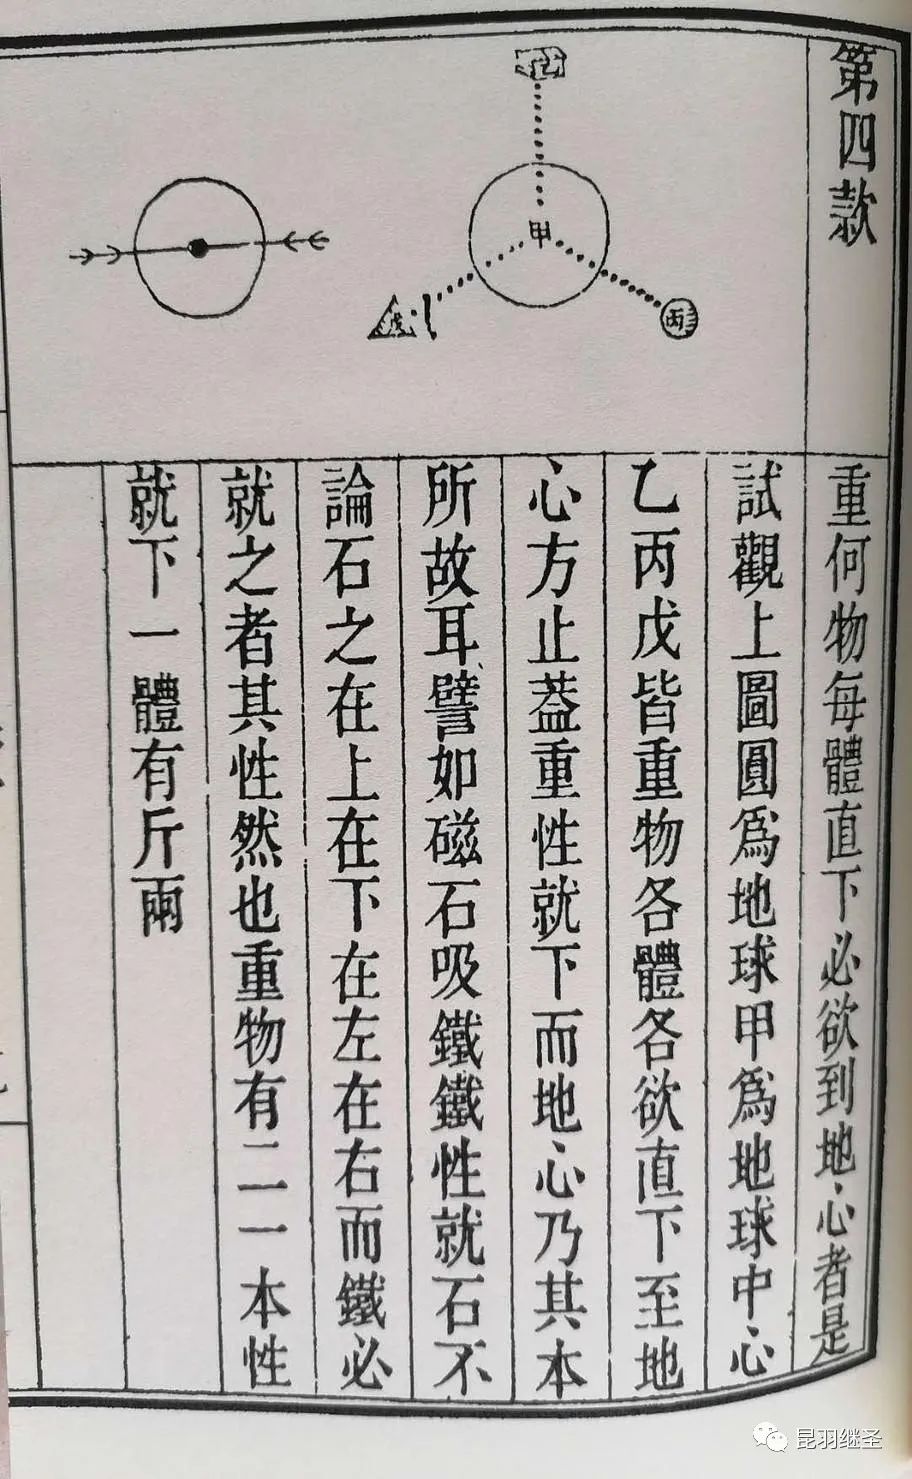 第四款
乙
甲
丙
戊
重何物每體直下必欲到地心者是
試觀上圖圓爲地球甲爲地球中心
乙丙戊皆重物各體各欲直下至地
心方止葢重性就下而地心乃其本
所故耳譬如磁石吸鐵鐵性就石不
論石之在上在下在左在右而鐵必
就之者其性然也重物有二一本性
就下一體有斤兩
昆羽继圣